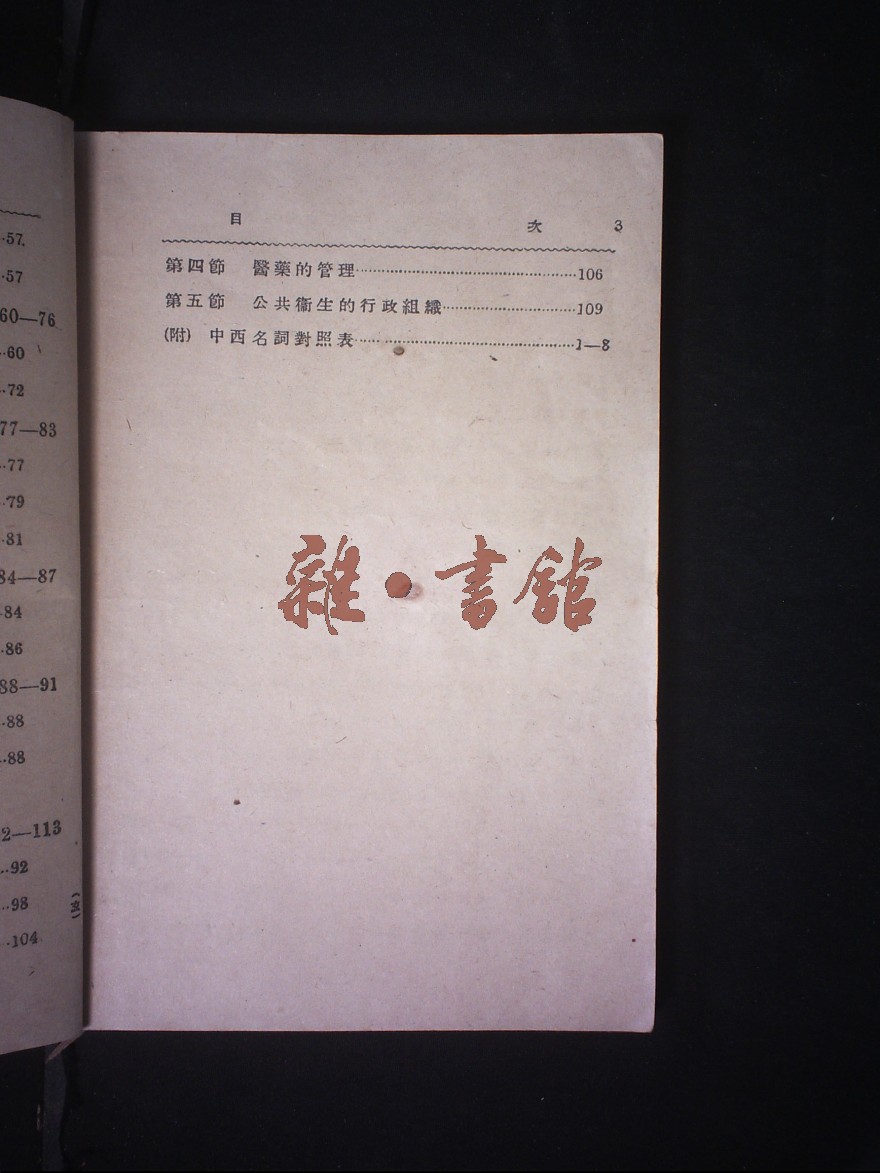 57
57
60—76
60
72
77—83
77
79
81
84—87
84
86
88—91
88
88
2—113
92
98
104
目 次 3
第四節 醫藥的管理……106
第五節 公共衞生的行政組織……109
(附) 中西名詞對照表……1—8
雜・書館